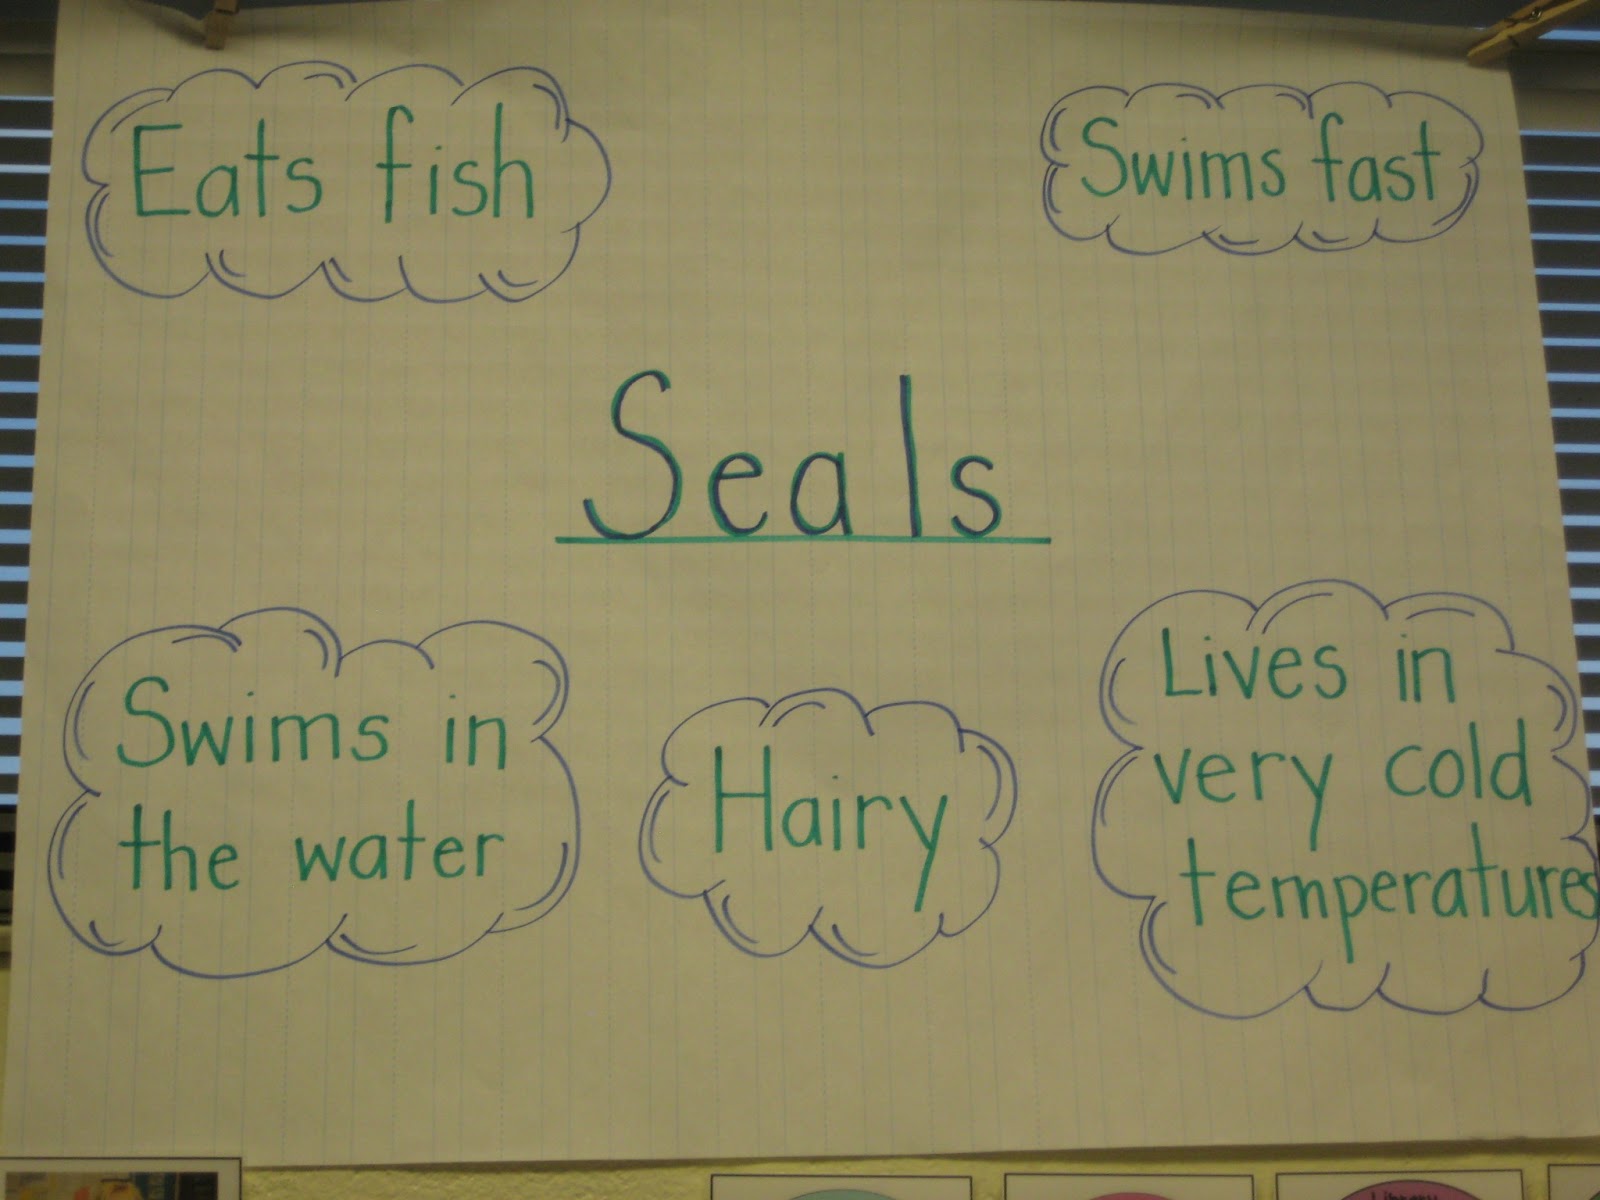 Eats fish
Swims fast
Seals
Swims in
the water
Hairy
Lives in
very cold
temperatures
Library